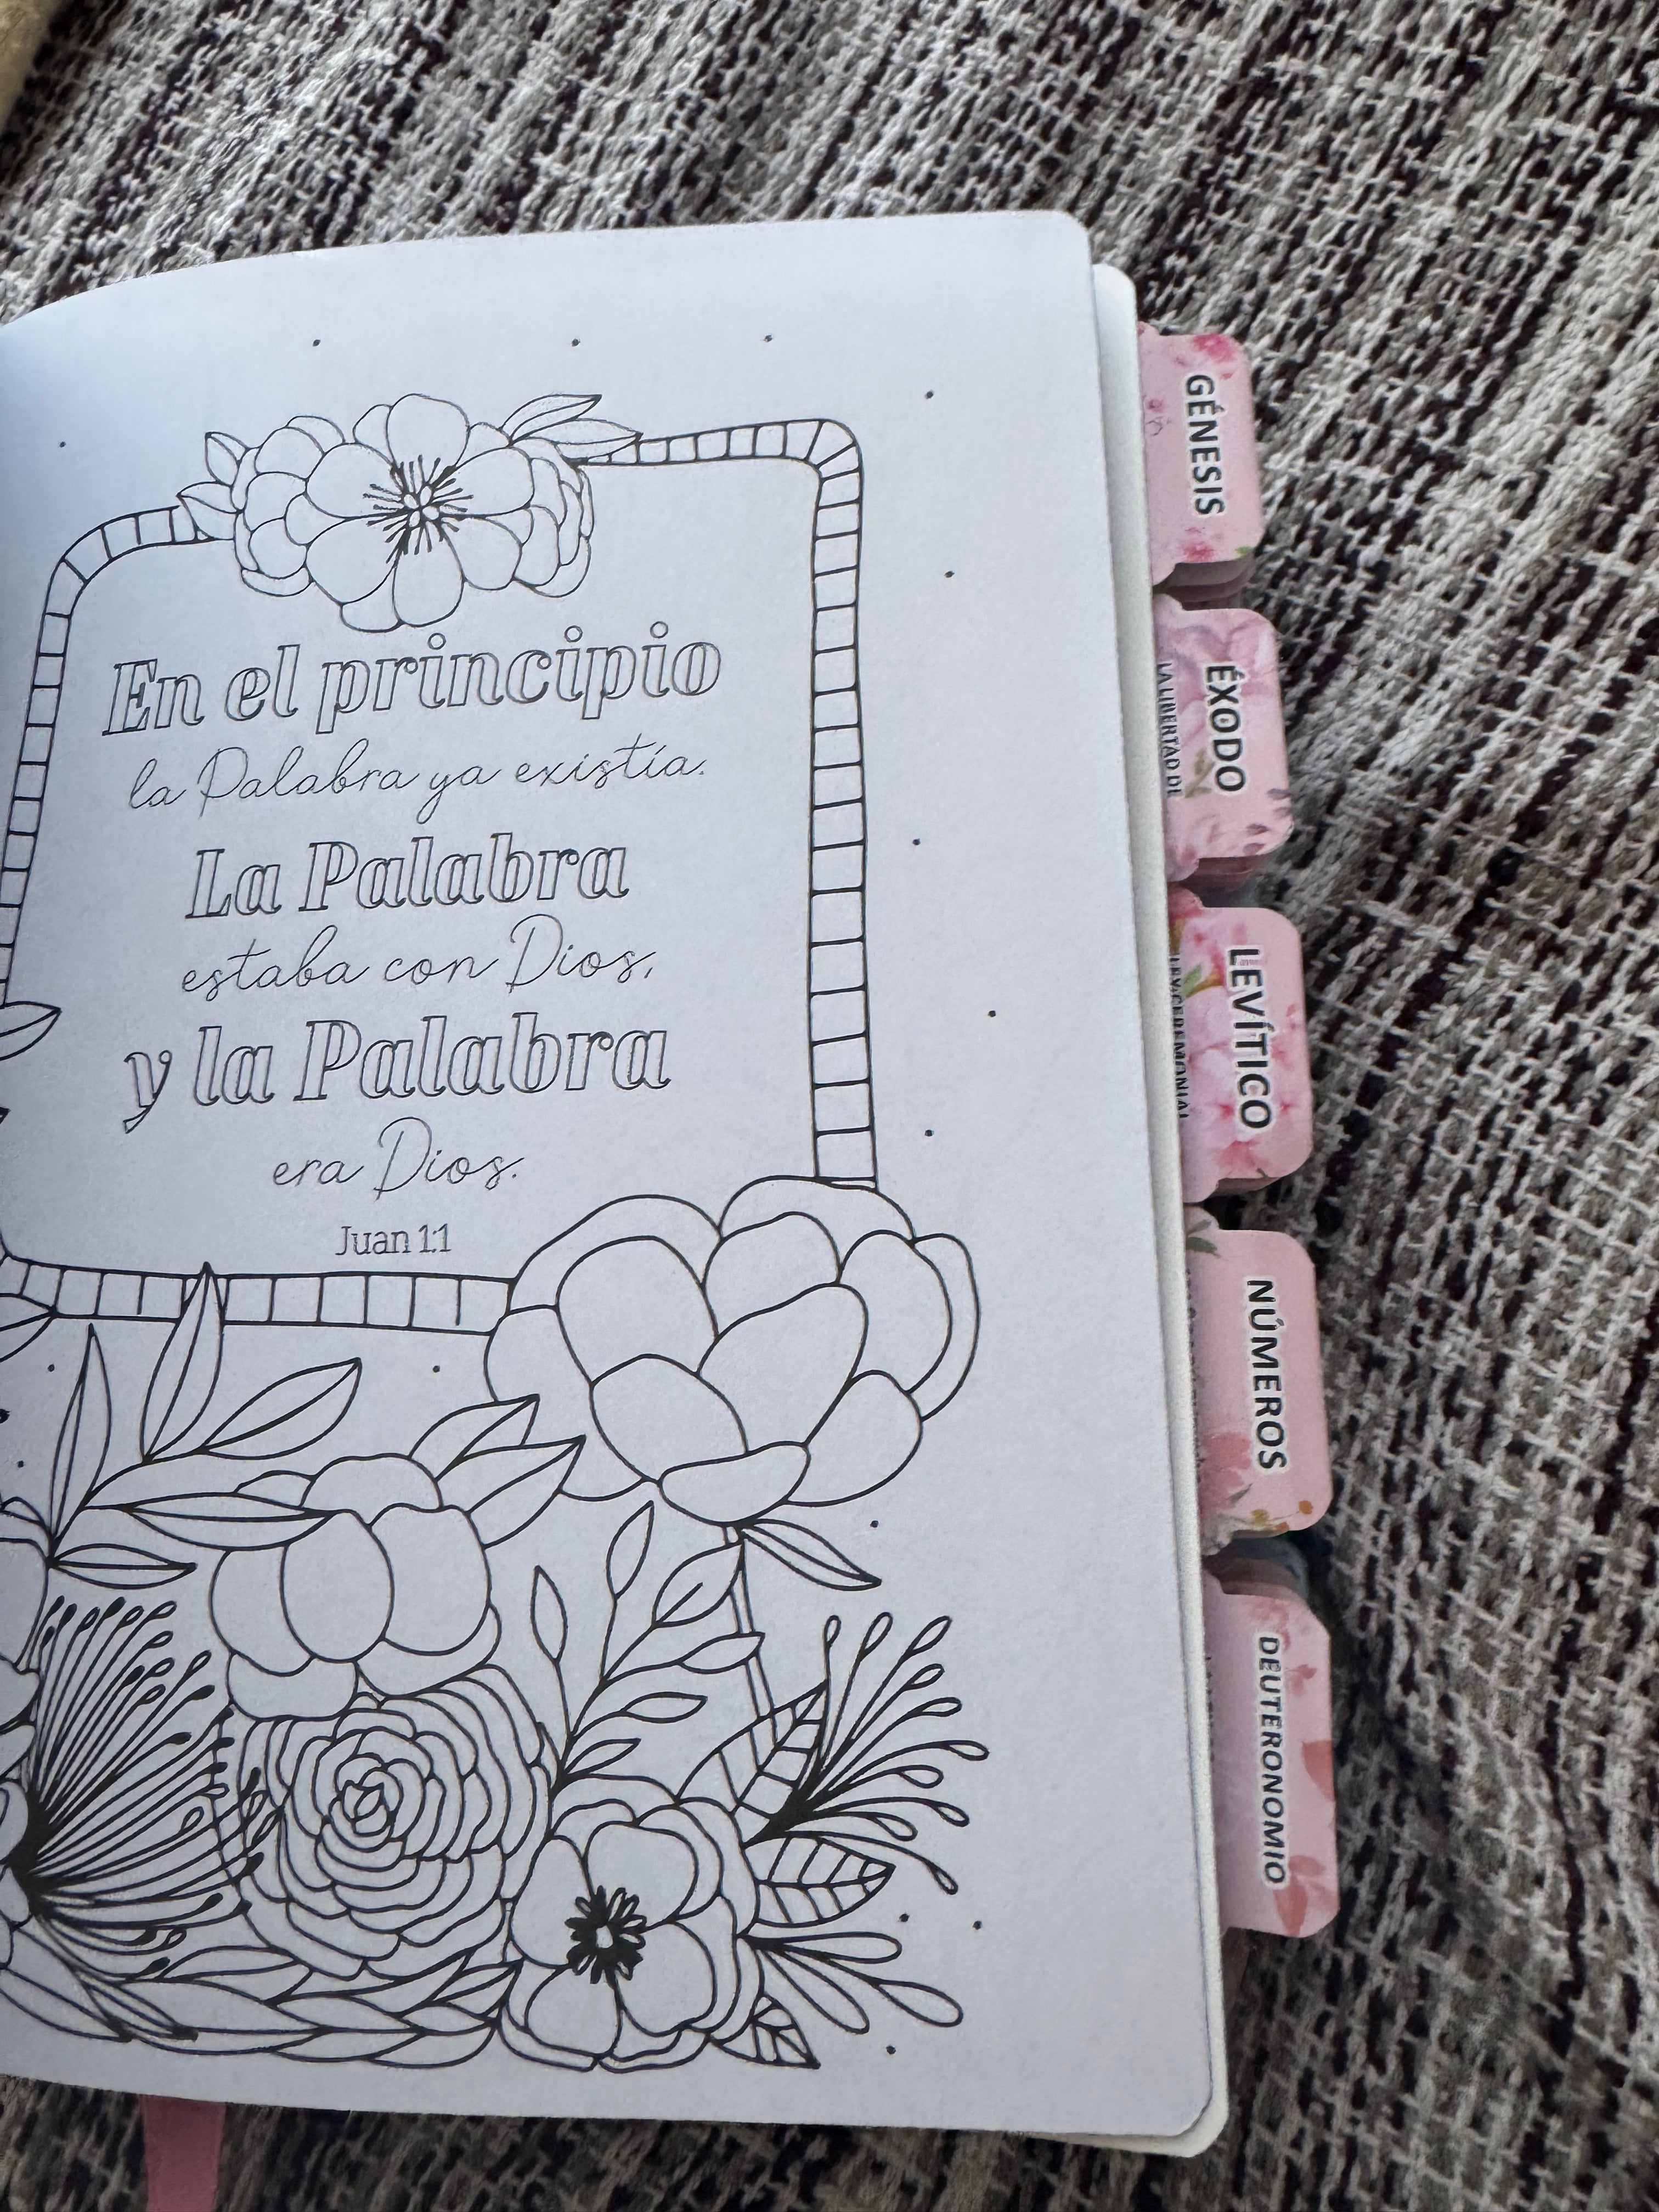 En el principio
la Palabra ya existía.
La Palabra
estaba con Dios,
y la Palabra
era Dios.
Juan 1:1
GÉNESIS
ÉXODO
LA LIBERTAD DE
LEVÍTICO
LEY CEREMONIAL
NÚMEROS
DEUTERONOMIO